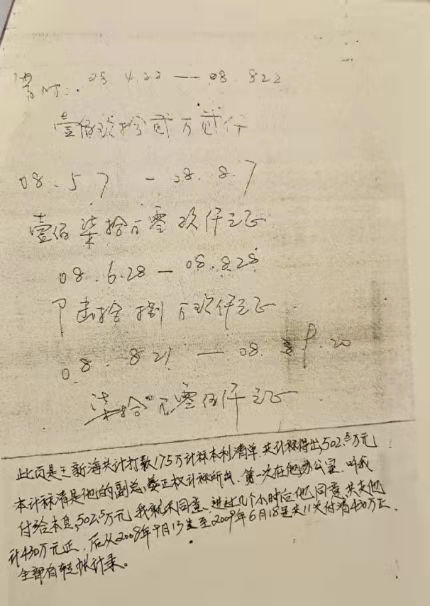 08.4.22 — 08.822
壹佰玖拾贰万贰仟
08.5.7 — 08.8.7
壹佰柒拾万零玖仟元正
08.6.28 — 08.8.28
拾捌万玖仟元正
08.8.21 — 08.9.20
柒拾万零伍仟元正
此页是王新海共计打款175万计算本利清单 共计算得出502.5万元
本计算清是他的副总 正权计称所出 第一次在他办公室 叫我
付给本息502.5万元 我就不同意 进过几个小时后他同意共欠他
计430万元正 后从2008年9月13号至2009年6月18号共11次付清430万正
全部有转帐计录。